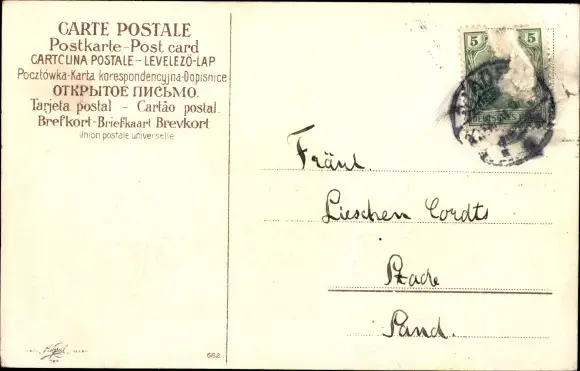 CARTE POSTALE
Postkarte-Post card
CARTOLINA POSTALE-LEVELEZŐ-LAP
Pocztówka-Karta korespondencyjna-Dopisnice
ОТКРЫТОЕ ПИСЬМО.
Tarjeta postal - Cartão postal.
Brefkort-Briefkaart Brevkort.
Union postale universelle
5 5
DEUTSCHES
Fräul.
Lieschen Cordts
Sand.
682